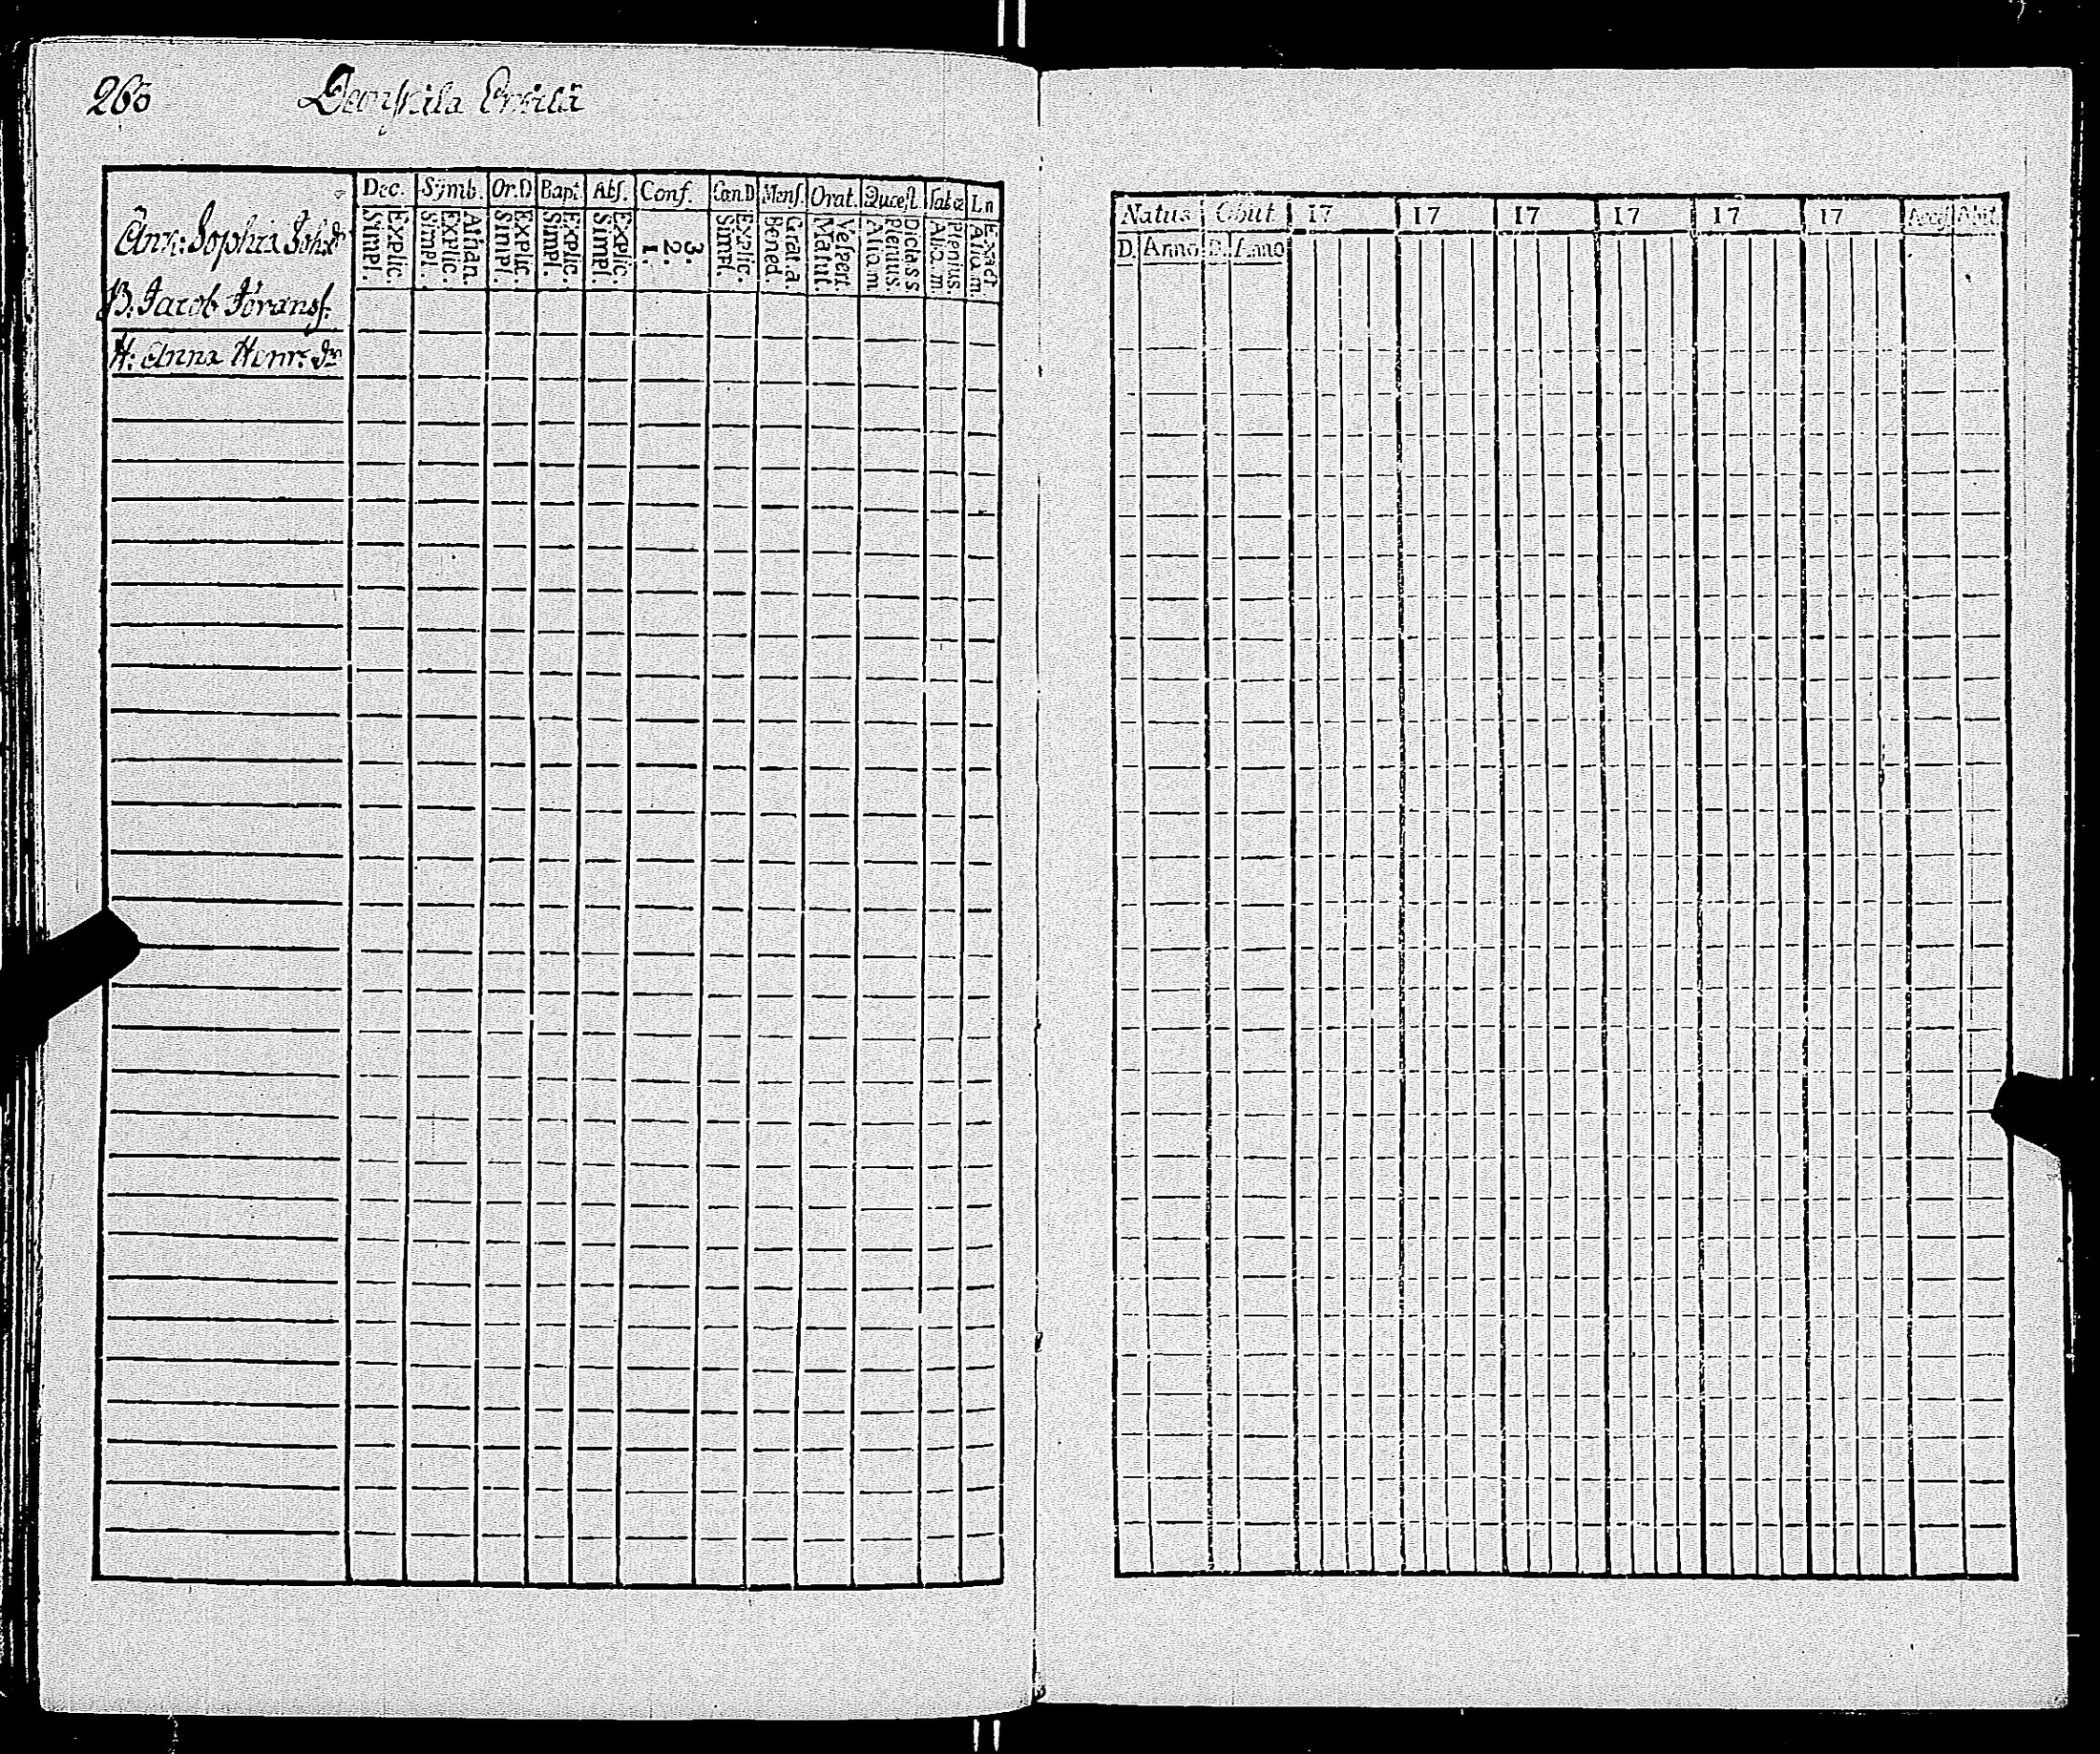 260
Ann: Sophia Joh: dr
B. Jacob Göransf.
H: Anna Henr: dr
Dec. Symb. Or.D Bapt Abf. Conf. Can.D Menf. Orat. Quæst. Tabæ Ln
Explic. Simpl. Athan. Explic. Simpl. Explic. Simpl. Explic. Simpl. Explic. Simpl. 3. 2. 1. Explic. Simpl. Grat.a. Bened. Vefpert. Matut. Dicta s.s. Plenius. Aliq.m Plenius. Aliq.m Exact Aliq.m.
Natus Obiit 17 17 17 17 17 17 Accef Abit
D. Anno D. Anno